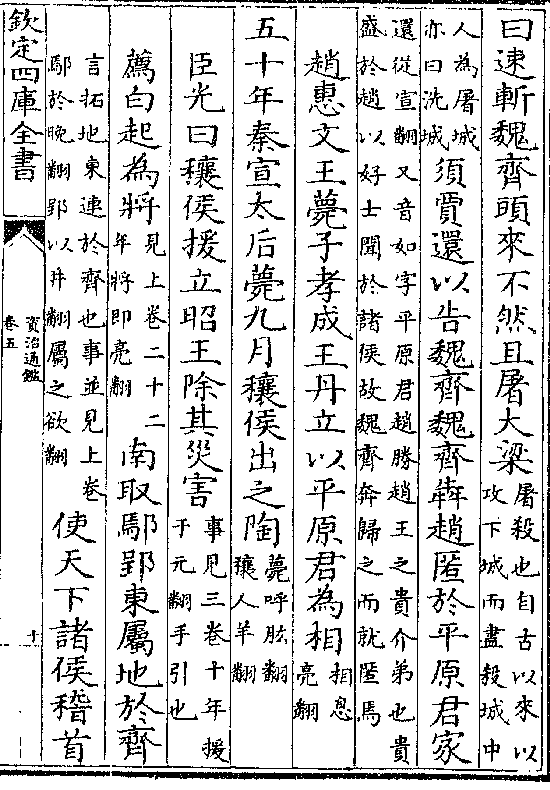 曰速斬魏齊頭來不然且屠大梁屠殺也自古以來以攻下城而盡殺城中
人為屠城亦曰洗城須賈還以告魏齊魏齊犇趙匿於平原君家
還從宣翻又音如字平原君趙勝趙王之貴介弟也貴盛於趙以好士聞於諸侯故魏齊奔歸之而就匿焉
趙惠文王薨子孝成王丹立以平原君為相相息亮翻
五十年秦宣太后薨九月穰侯出之陶薨呼肱翻穰人羊翻
臣光曰穰侯援立昭王除其災害事見三卷十年援于元翻手引也
薦白起為將見上卷二十二年將即亮翻南取鄢郢東屬地於齊
言拓地東連於齊也事並見上卷鄢於晚翻郢以井翻屬之欲翻使天下諸侯稽首
欽定四庫全書
資治通鑑
卷五
十